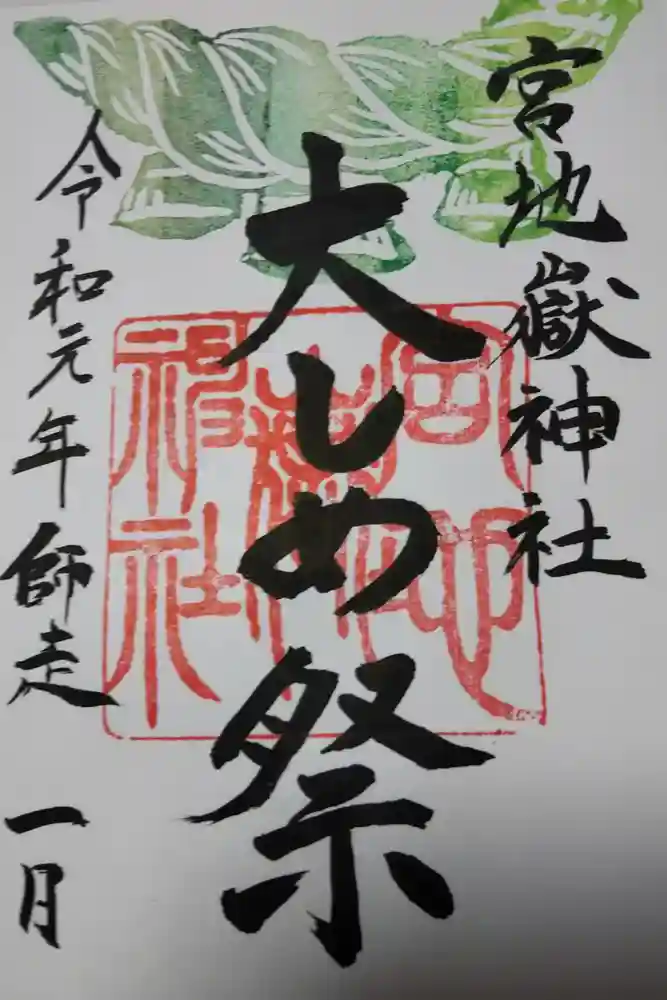 宮地嶽神社
大しめ祭
令和元年師走 一月
宮地嶽神社